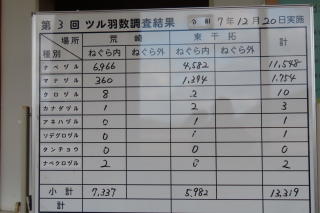 第3回 ツル羽数調査結果 令和 7年12月20日実施
場所 荒崎 東干拓 計
種別 ねぐら内 ねぐら外 ねぐら内 ねぐら外
ナベヅル 6,966 4,582 11,548
マナヅル 360 1,394 1,754
クロヅル 8 2 10
カナダヅル 1 2 3
アネハヅル 0 1 1
ソデグロヅル 0 1 1
タンチョウ 0 0 0
ナベクロヅル 2 0 2
小計 7,337 5,982 13,319
計